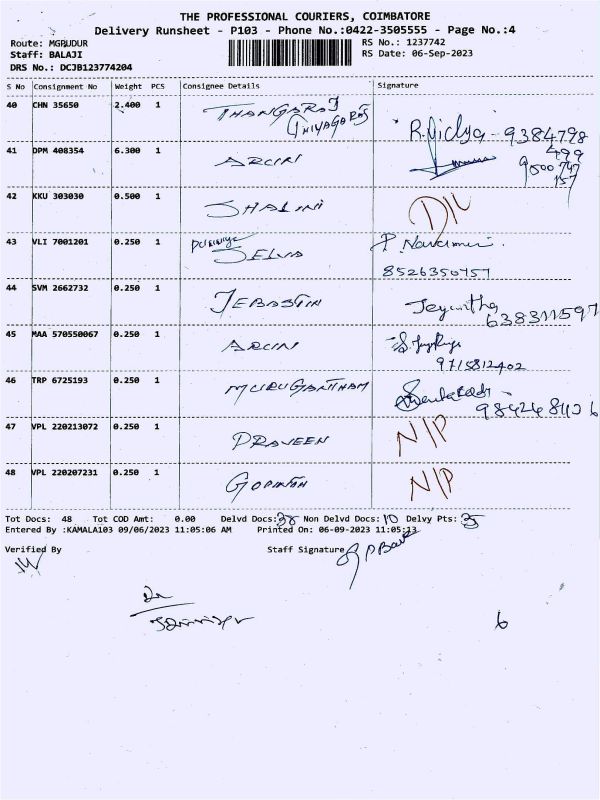 THE PROFESSIONAL COURIERS, COIMBATORE
Delivery Runsheet - P103 - Phone No.:0422-3505555 - Page No.:4
Route: MGRUDUR RS No.: 1237742
Staff: BALAJI RS Date: 06-Sep-2023
DRS No.: DCJB123774204
S No Consignment No Weight PCS Consignee Details Signature
40 CHN 35650 2.400 1 THANGARAJ THIYAGARAJ R.Vidya - 9384798 499
41 DPM 408354 6.300 1 ARUN 9500747 157
42 KKU 303030 0.500 1 SHALINI D/L
43 VLI 7001201 0.250 1 SELVA P.
8526350757
44 SVM 2662732 0.250 1 JEBASTIN Jeyantha
638311597
45 MAA 570550067 0.250 1 ARUN
9715812402
46 TRP 6725193 0.250 1 MURUGANTHAM
47 VPL 220213072 0.250 1 PRAVEEN N/P
48 VPL 220207231 0.250 1 GOPINATH N/P
Tot Docs: 48 Tot COD Amt: 0.00 Delvd Docs: 38 Non Delvd Docs: 10 Delvy Pts: 35
Entered By :KAMALA103 09/06/2023 11:05:06 AM Printed On: 06-09-2023 11:05:13
Verified By Staff Signature
6